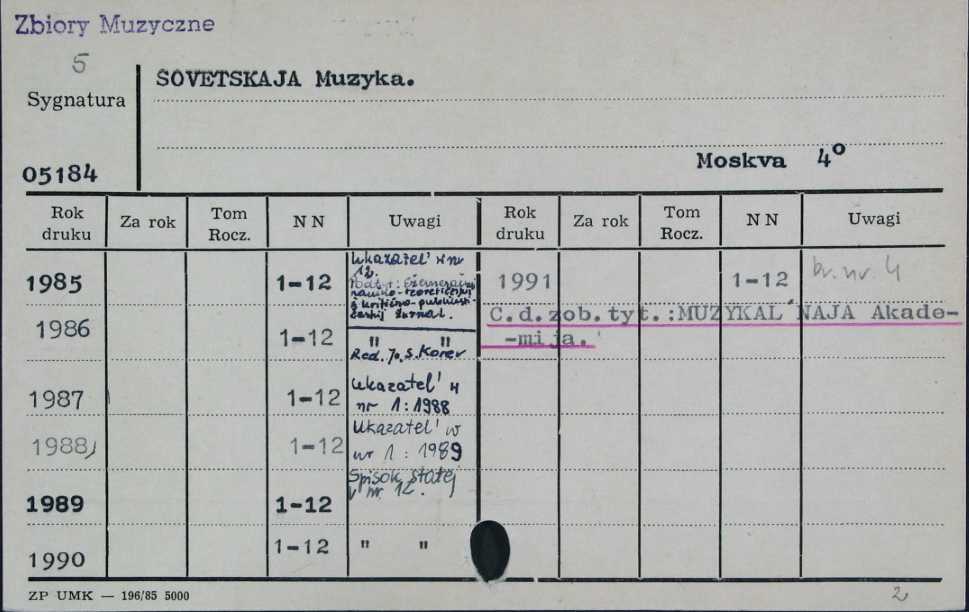 Zbiory Muzyczne
5
Sygnatura
05184
SOVETSKAJA Muzyka.
Moskva 4°
Rok druku Za rok Tom Rocz. N N Uwagi Rok druku Za rok Tom Rocz. N N Uwagi
1985 1-12 Ukazatel' w nr 12.
Podtyt: Ežemesjačnyj
naučno-teoretičeskij
i kritično-publicisti-
českij žurnal.
1991 1-12 br. nr. 4
C.d.zob.tyt.:MUZYKAL'NAJA Akade-
-mija.
1986 1-12 " "
Red. Ju. S. Korev
1987 1-12 Ukazatel' w
nr 1:1988
1988 1-12 Ukazatel' w
nr 1 : 1989
1989 1-12 Spisok statej
v nr. 12.
1990 1-12 " "
ZP UMK — 196/85 5000
2